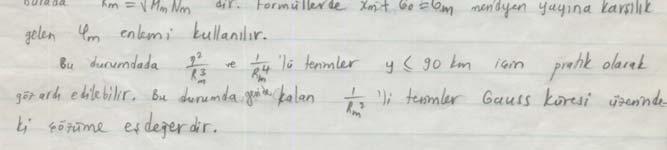 burada R_m = √M_m N_m dir. Formüllerde x_m + G_0 = G_m meridyen yayına karşılık
gelen φ_m enlemi kullanılır.
Bu durumdada η²/R_m³ ve 1/R_m⁴ 'lü terimler y ≤ 90 km için pratik olarak
göz ardı edilebilir. Bu durumda geride kalan 1/R_m² 'li terimler Gauss küresi üzerinde
ki çözüme eşdeğerdir.